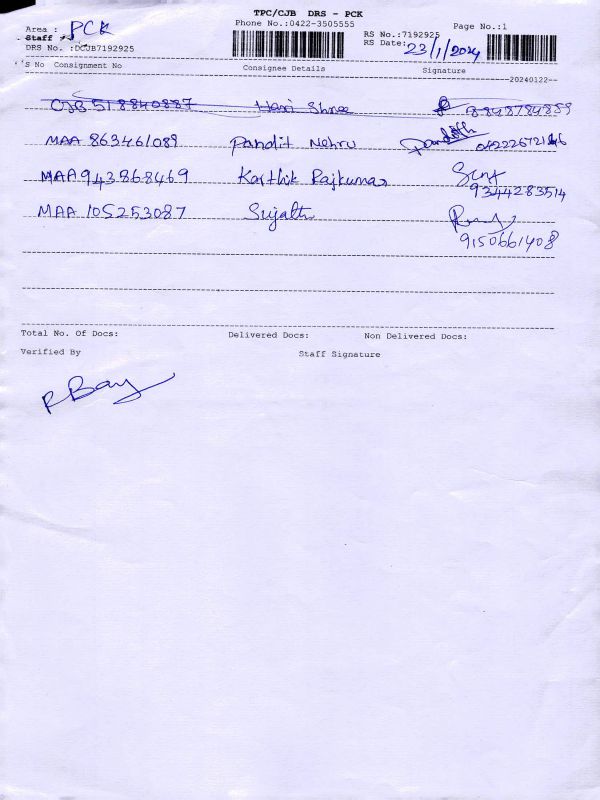 TPC/CJB DRS - PCK
Phone No.:0422-3505555
Page No.:1
Area : PCK
Staff :
DRS No. :DCJB7192925
RS No.:7192925
RS Date: 23/1/2024
S No Consignment No Consignee Details Signature
20240122--
CJB 518840887 Hari Shree 8848784859
MAA 863461089 Pandit Nehru 04222672146
MAA 943868469 Karthik Rajkumar 9344283514
MAA 105253087 Sujath 9150661408
Total No. Of Docs: Delivered Docs: Non Delivered Docs:
Verified By Staff Signature